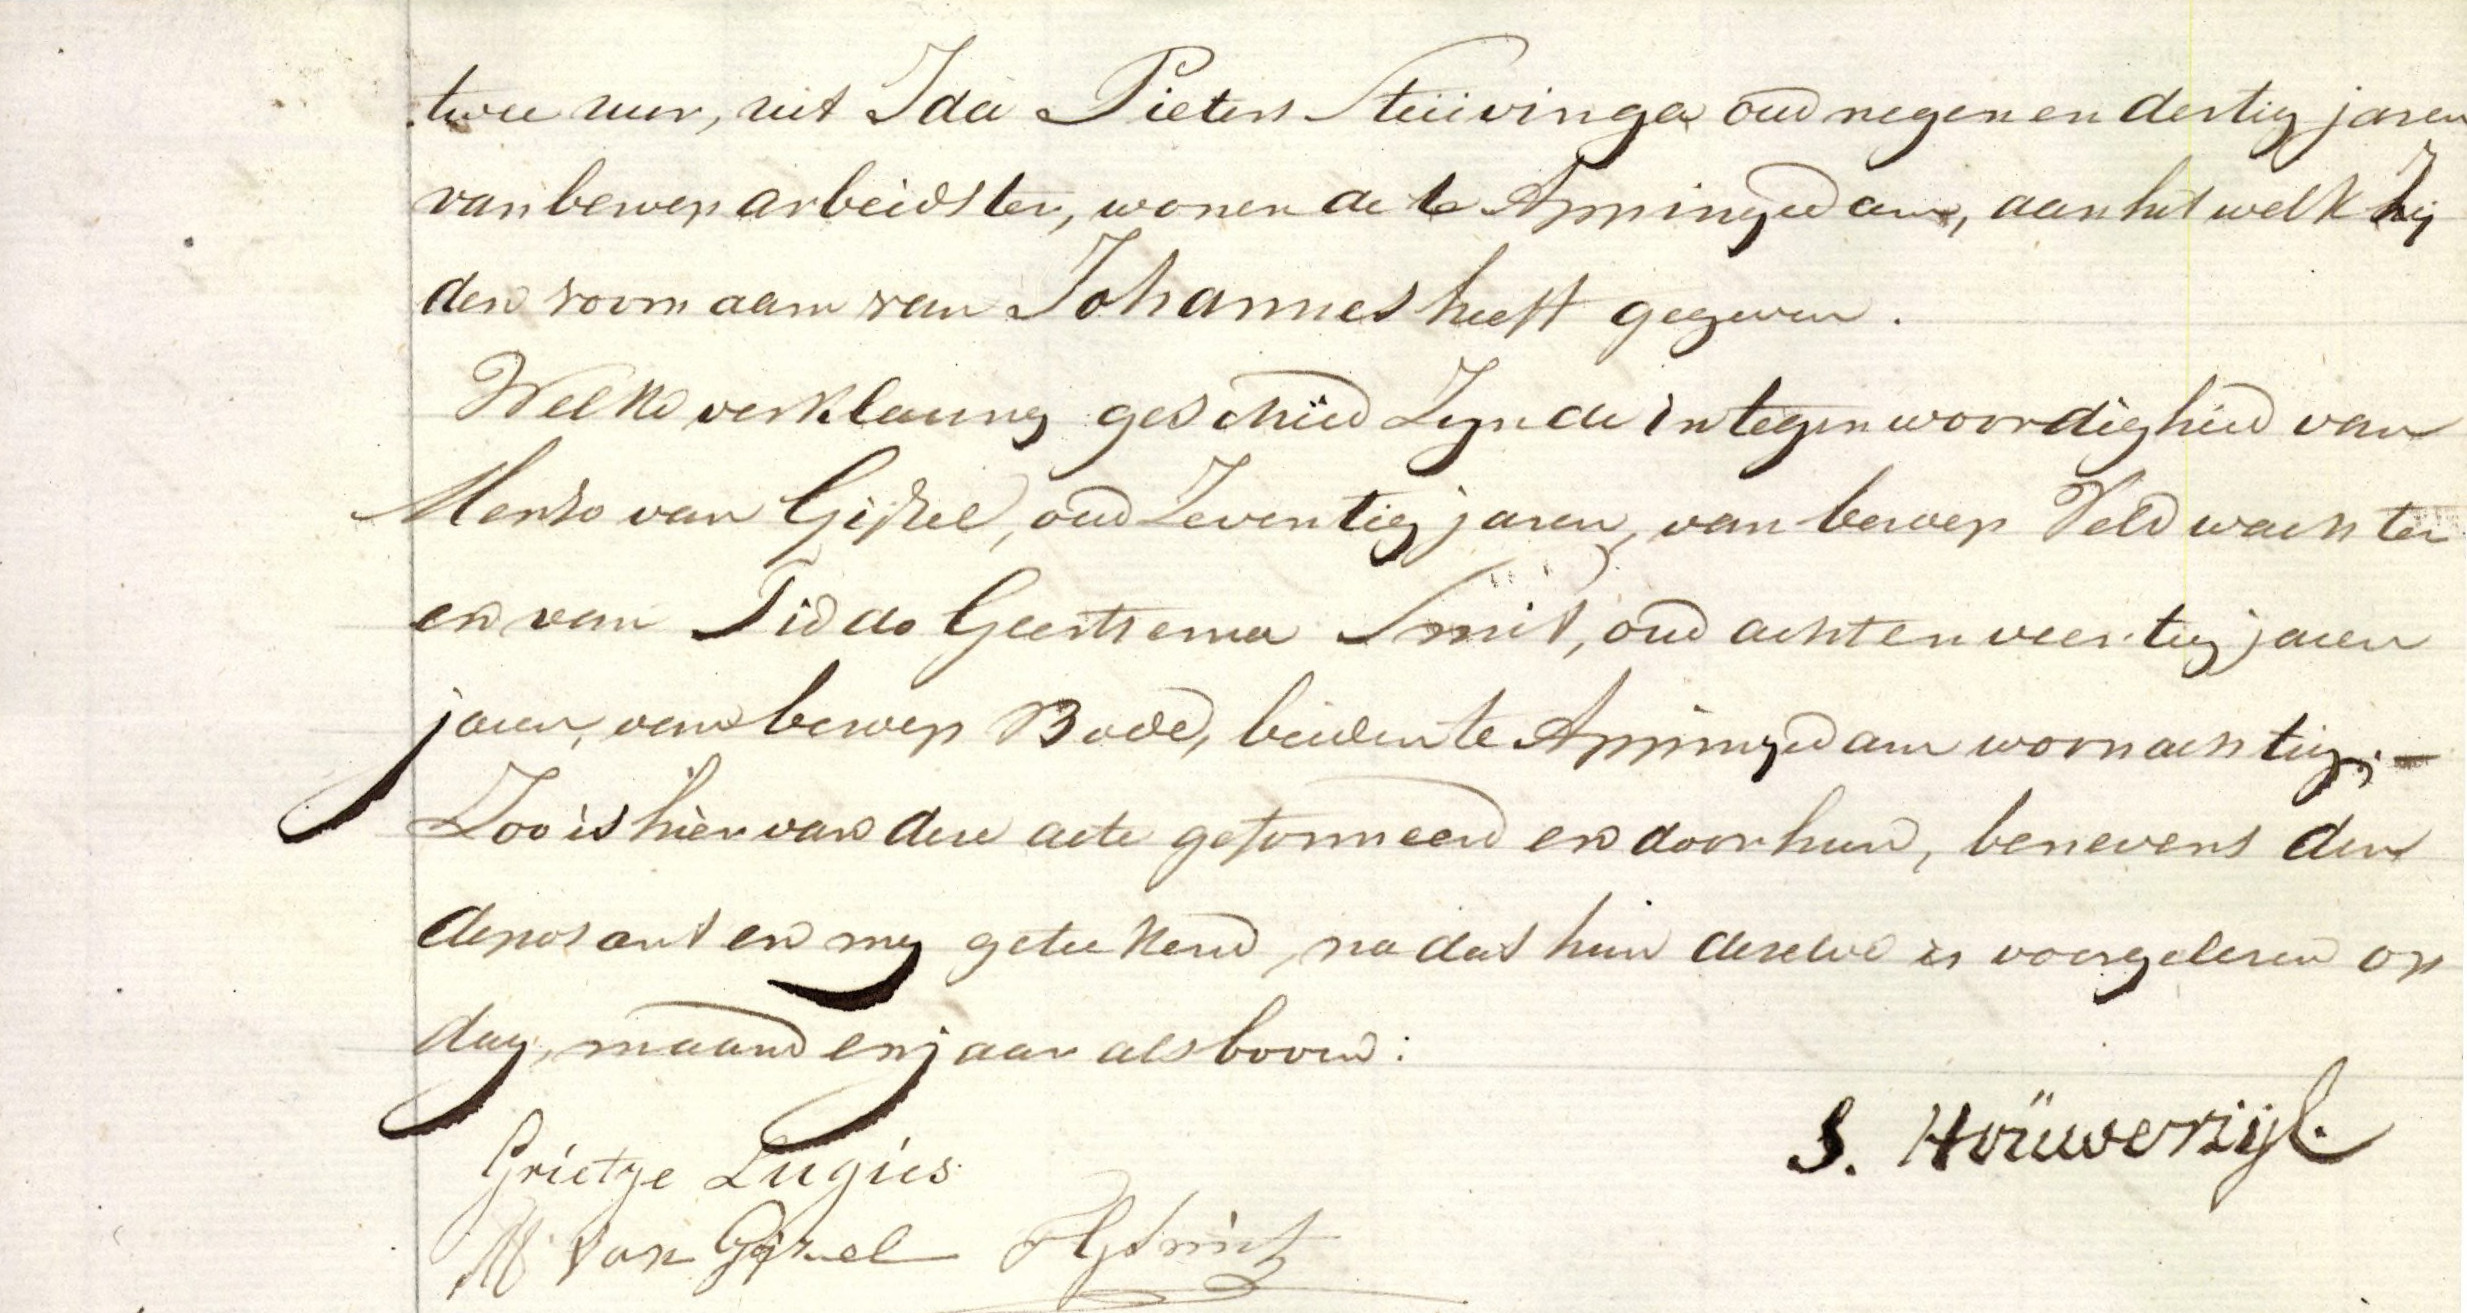 twee uur, uit Ida Pieters Stuivinga oud negen en dertig jaren
van beroep arbeidster, wonende te Appingedam, aan het welk hij
den voornaam van Johannes heeft gegeven.
Welke verklaring geschied Zynde in tegenwoordigheid van
Menko van Gijzel, oud Zeventig jaren, van beroep Veldwachter
en van Tiddo Geertsema Smit, oud acht en veertig jaren
jaren, van beroep Bode, beiden te Appingedam woonachtig;—
Zoo is hier van deze acte geformeerd en door hun, benevens den
deposant en my geteekend, na dat hun dezelve is voorgelezen op
dag, maand en jaar als boven:
S. Houwerzijl.
Grietje Lugies
M van Gijzel TG Smit